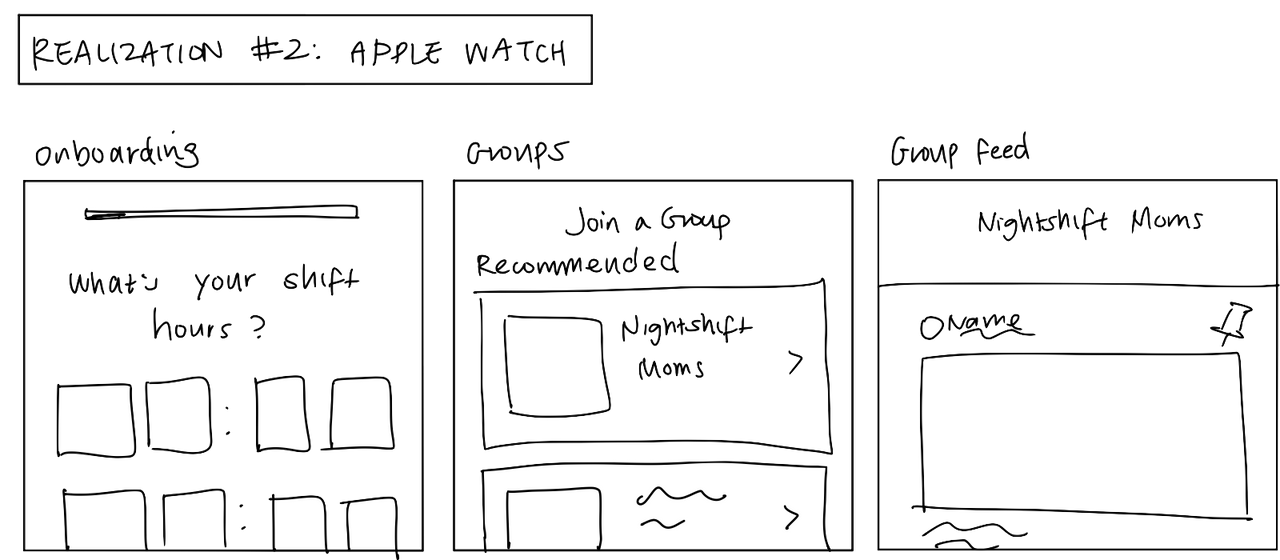 REALIZATION #2: APPLE WATCH
Onboarding
What's your shift
hours?
:
:
Groups
Join a Group
Recommended
Nightshift
Moms
>
>
Group Feed
Nightshift Moms
Name